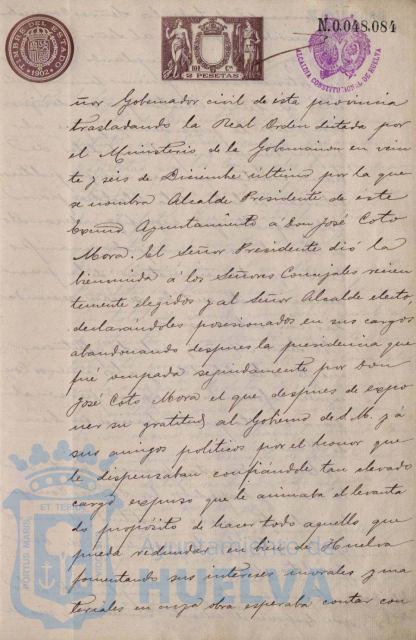 TIMBRE DEL ESTADO
1902
2 PESETAS
N.0.048.084
ALCALDIA CONSTITUCIONAL DE HUELVA
ñor Gobernador civil de esta provincia
trasladando la Real Orden dictada por
el Ministerio de la Gobernacion en vein
te y seis de Diciembre ultimo por la que
se nombra Alcalde Presidente de este
Excmo Ayuntamiento á Don José Coto
Mora. El Señor Presidente dió la
bienvenida á los Señores Concejales recien
temente elegidos y al Señor Alcalde electo,
declarándoles posesionados en sus cargos
abandonando despues la presidencia que
fué ocupada seguidamente por Don
José Coto Mora el que despues de expo
ner su gratitud al Gobierno de S.M. y á
sus amigos politicos por el honor que
le dispensaban confiándole tan elevado
cargo expuso que le animaba el levanta
do propósito de hacer todo aquello que
pueda redundar en bien de Huelva
fomentando sus intereses morales y ma
teriales en cuya obra esperaba contar con
PORTUS MARIS ET TERRAE
Ayuntamiento de
HUELVA